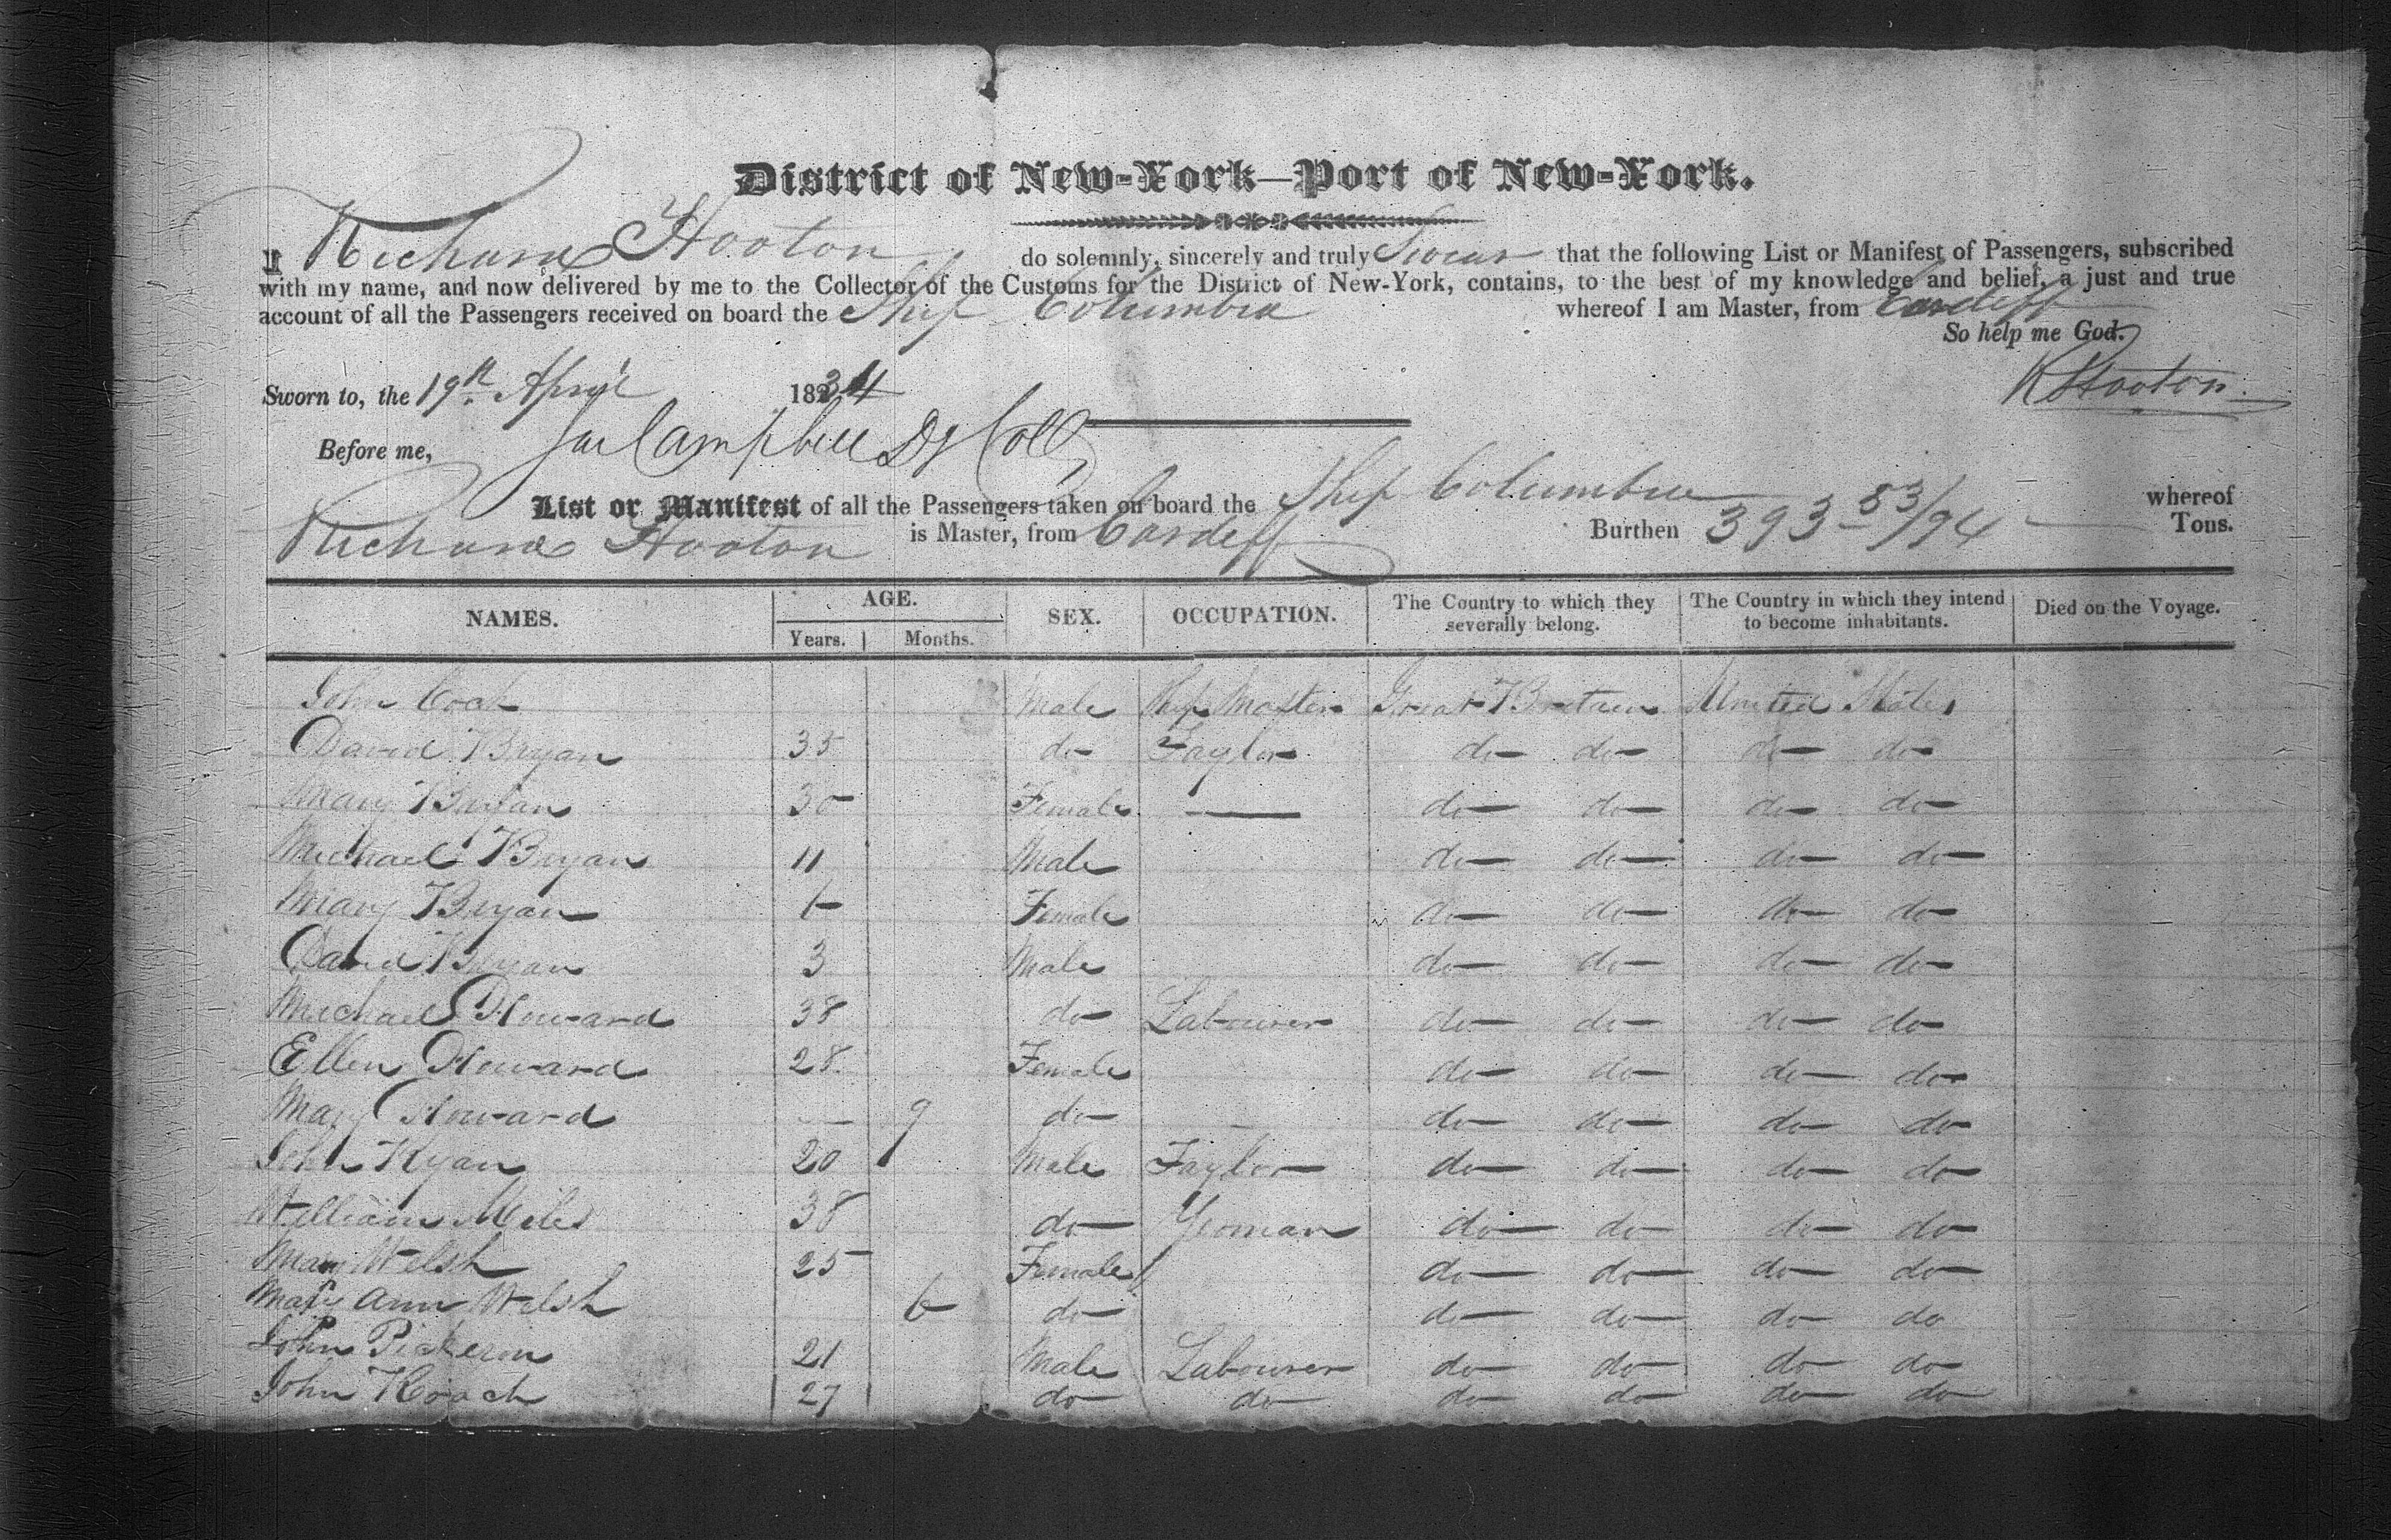 District of New-York—Port of New-York.
I Richard Hooton do solemnly, sincerely and truly Swear that the following List or Manifest of Passengers, subscribed
with my name, and now delivered by me to the Collector of the Customs for the District of New-York, contains, to the best of my knowledge and belief, a just and true
account of all the Passengers received on board the Ship Columbia whereof I am Master, from Cardeff
So help me God.
Sworn to, the 19th April 1834 R Hooton
Before me, Campbell Dy Coll
List or Manifest of all the Passengers taken on board the Ship Columbia whereof
Richard Hooton is Master, from Cardeff Burthen 393 53/94 Tons.
NAMES. AGE. SEX. OCCUPATION. The Country to which they severally belong. The Country in which they intend to become inhabitants. Died on the Voyage.
Years. Months.
John Cock Male Ship Master Great Britain United States
David Bryan 35 do Taylor do do do do
Mary Bryan 30 Female — do do do do
Michael Bryan 11 Male do do do do
Mary Bryan 6 Female do do do do
David Bryan 3 Male do do do do
Michael Howard 38 do Labourer do do do do
Ellen Howard 28 Female do do do do
Mary Howard — 9 do do do do do
John Ryan 20 Male Taylor do do do do
William Miles 38 do Yeoman do do do do
Mary Welsh 25 Female do do do do
Mary Ann Welsh 6 do do do do do
John Pickeron 21 Male Labourer do do do do
John Roach 27 do do do do do do